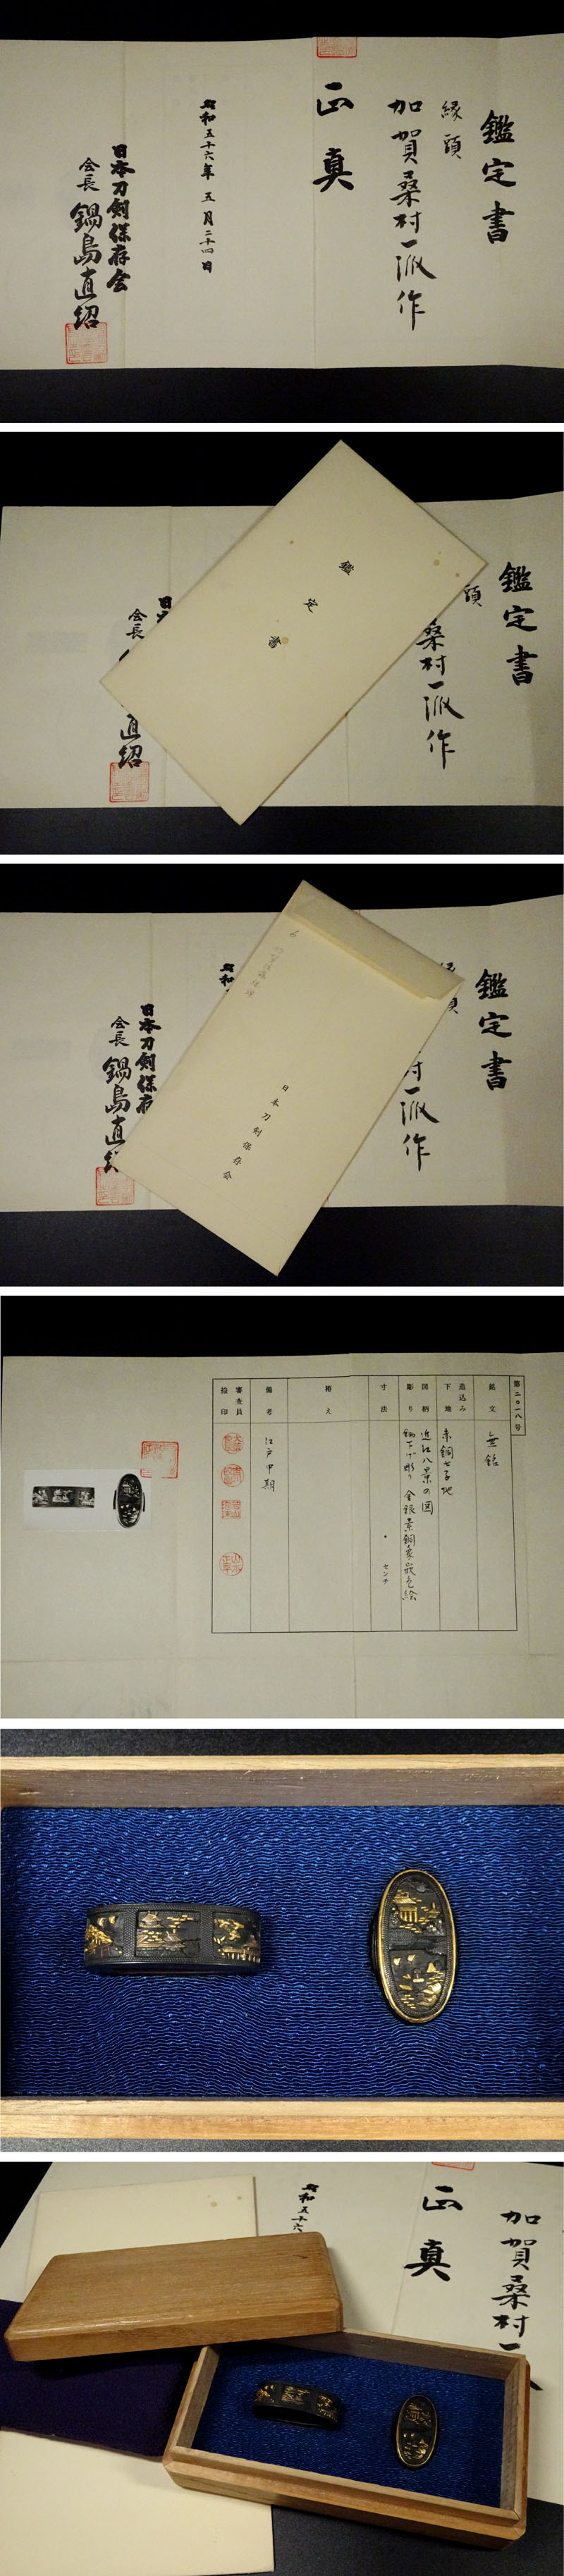 鑑定書
縁頭
加賀桑村一派作
正真
昭和五十六年 五月二十四日
日本刀剣保存会
会長 鍋島直紹
鑑定書
頭
桑村一派作
会長
直紹
鑑定書
鑑定書
村一派作
昭和
日本刀剣保存
会長
鍋島直紹
日本刀剣保存会
第二〇一八号
銘文
無銘
造込み
下地
赤銅七子地
図柄
彫り
近江八景の図
鋤下げ彫り 金銀素銅象嵌色絵
寸法
センチ
拵え
備考
江戸中期
審査員
捺印
昭和五十六
正真
加賀桑村一